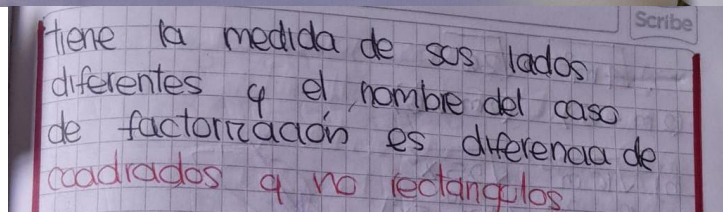 Scribe
tiene la medida de sus lados
diferentes y el nombre del caso
de factorización es diferencia de
cuadrados y no rectangulos